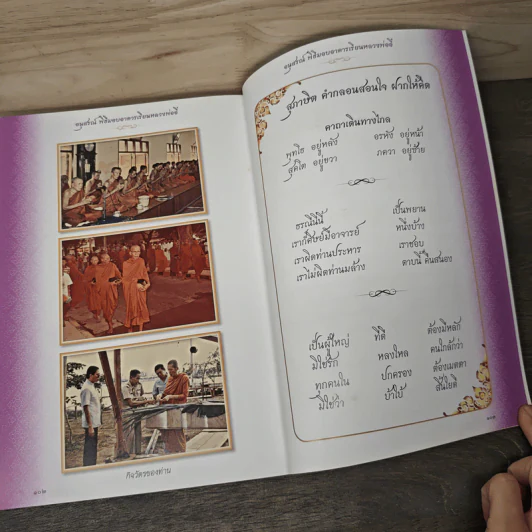 อนุสรณ์ พิธีมอบอาคารเรียนหลวงพ่อจี
กิจวัตรของท่าน
๑๐๒
อนุสรณ์ พิธีมอบอาคารเรียนหลวงพ่อจี
สุภาษิต คำกลอนสอนใจ ฝากให้คิด
คาถาเดินทางไกล
พุทโธ อยู่หลัง อรหัง อยู่หน้า
สุคโต อยู่ขวา ภควา อยู่ซ้าย
ธรณีนี่นี้ เป็นพยาน
เราก็ศิษย์มีอาจารย์ หนึ่งบ้าง
เราผิดท่านประหาร เราชอบ
เราไม่ผิดท่านมล้าง ดาบนี้ คืนสนอง
เป็นผู้ใหญ่ ที่ดี ต้องมีหลัก
มิใช่รัก หลงใหล คนใกล้กว่า
ทุกคนใน ปกครอง ต้องเมตตา
มิใช่ว่า บ้าใบ้